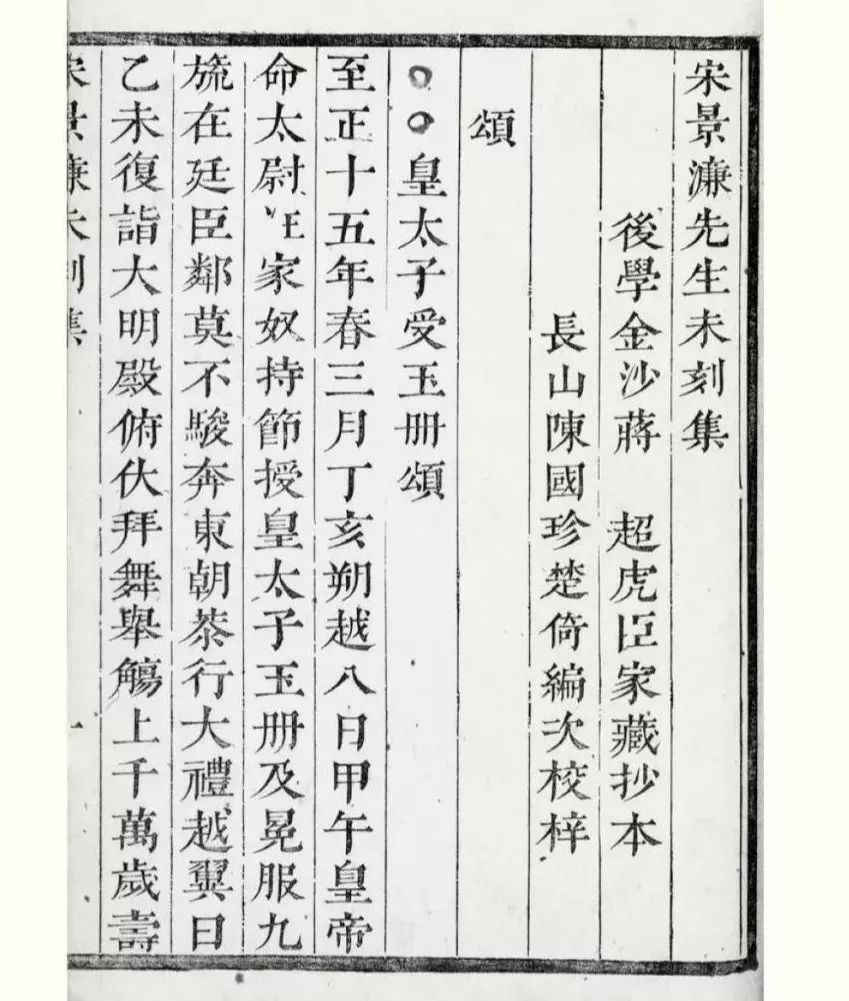 宋景濂先生未刻集
後學金沙蔣 超虎臣家藏抄本
長山陳國珍楚倚編次校梓
頌
○○皇太子受玉冊頌
至正十五年春三月丁亥朔越八日甲午皇帝
命太尉汪家奴持節授皇太子玉冊及冕服九
旒在廷臣鄰莫不駿奔東朝恭行大禮越翼日
乙未復詣大明殿俯伏拜舞舉觴上千萬歲壽
宋景濂未刻集 一